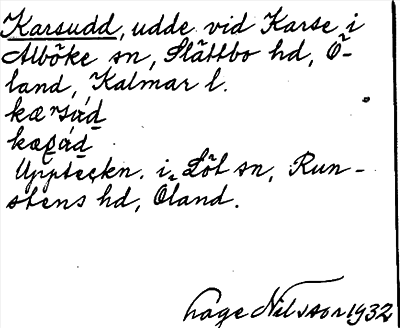 Karsudd, udde vid Karse i
Alböke sn, Slättbo hd, Ö-
land, Kalmar l.
Uppteckn. i Löt sn, Run-
stens hd, Öland.
Tage Nilsson 1932